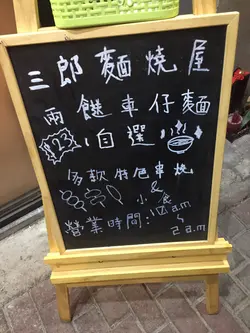 三郎麵燒屋
兩餸車仔麵
$23 自選
多款特色串燒
&
小食
營業時間:10a.m
~
2a.m